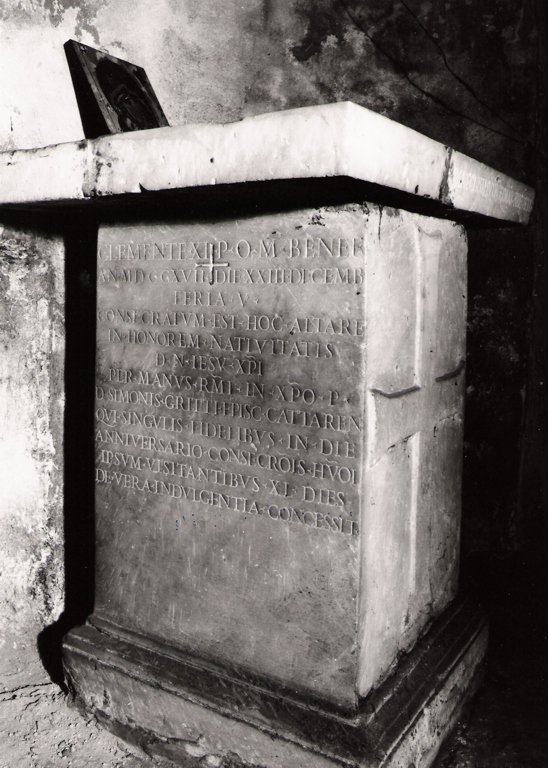 CLEMENTE XI P·O·M· BENE
DIE XXIII DECEMB
FERIA V
CONSECRATVM·EST·HOC·ALTARE
IN·HONOREM·NATIVITATIS
D·N·IESV·XPI
PER·MANVS·RMI·IN·XPO·P·
D·SIMONIS·GRITTI·EPISC·CATTAREN
QVI·SINGVLIS·FIDELIBVS·IN·DIE
ANNIVERSARIO·CONSECROIS·HVOI
IPSVM·VISITANTIBVS·XL·DIES
DE·VERA·INDVLGENTIA·CONCESSIT